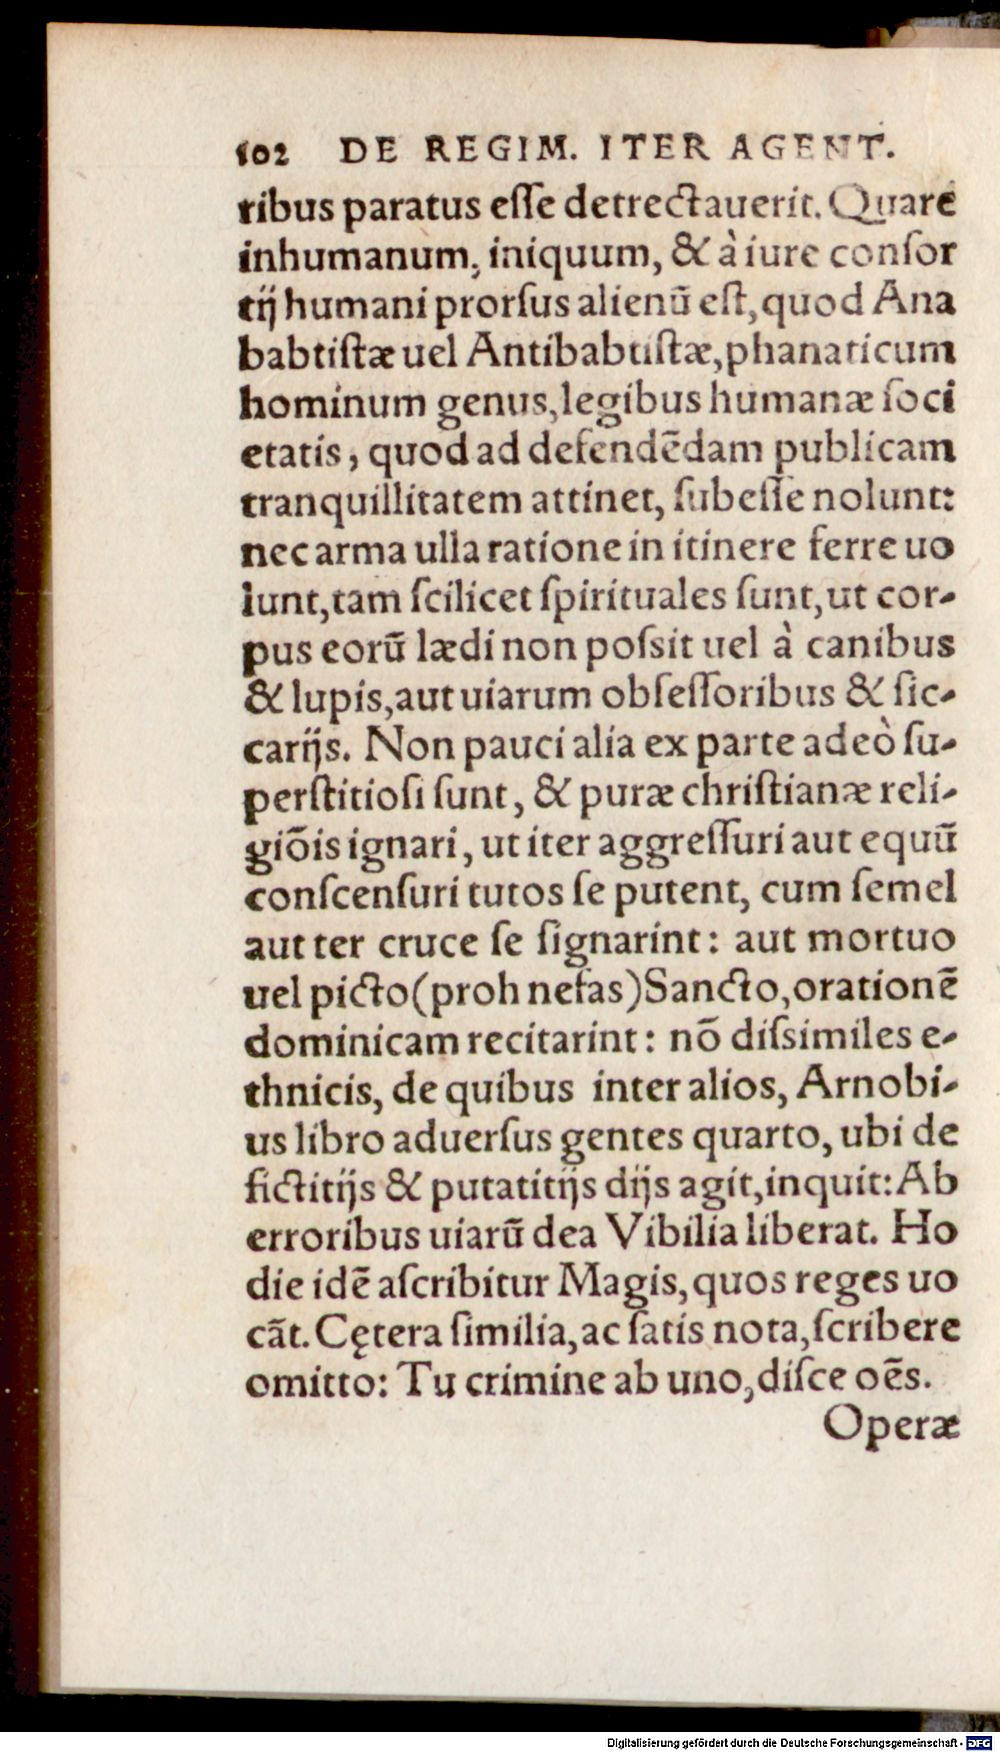 102 DE REGIM. ITER AGENT.
ribus paratus eſſe detrectauerit. Quare
inhumanum, iniquum, & à iure conſor
tij humani prorſus alienũ eſt, quod Ana
babtiſtæ uel Antibabtiſtæ, phanaticum
hominum genus, legibus humanæ ſoci
etatis, quod ad defendẽdam publicam
tranquillitatem attinet, ſubeſſe nolunt:
nec arma ulla ratione in itinere ferre uo
lunt, tam ſcilicet ſpirituales ſunt, ut cor-
pus eorũ lædi non poſsit uel à canibus
& lupis, aut uiarum obſeſſoribus & ſic-
carijs. Non pauci alia ex parte adeò ſu-
perſtitioſi ſunt, & puræ chriſtianæ reli-
giõis ignari, ut iter aggreſſuri aut equũ
conſcenſuri tutos ſe putent, cum ſemel
aut ter cruce ſe ſignarint: aut mortuo
uel picto (proh nefas) Sancto, orationẽ
dominicam recitarint: nõ diſsimiles e-
thnicis, de quibus inter alios, Arnobi-
us libro aduerſus gentes quarto, ubi de
fictitijs & putatitijs dijs agit, inquit: Ab
erroribus uiarũ dea Vibilia liberat. Ho
die idẽ aſcribitur Magis, quos reges uo
cãt. Cętera ſimilia, ac ſatis nota, ſcribere
omitto: Tu crimine ab uno, diſce oẽs.
Operæ
Digitalisierung gefördert durch die Deutsche Forschungsgemeinschaft - DFG